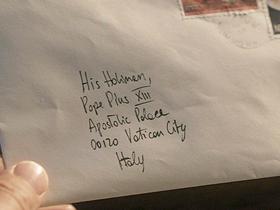 His Holiness,
Pope Pius XIII
Apostolic Palace
00120 Vatican City
Italy